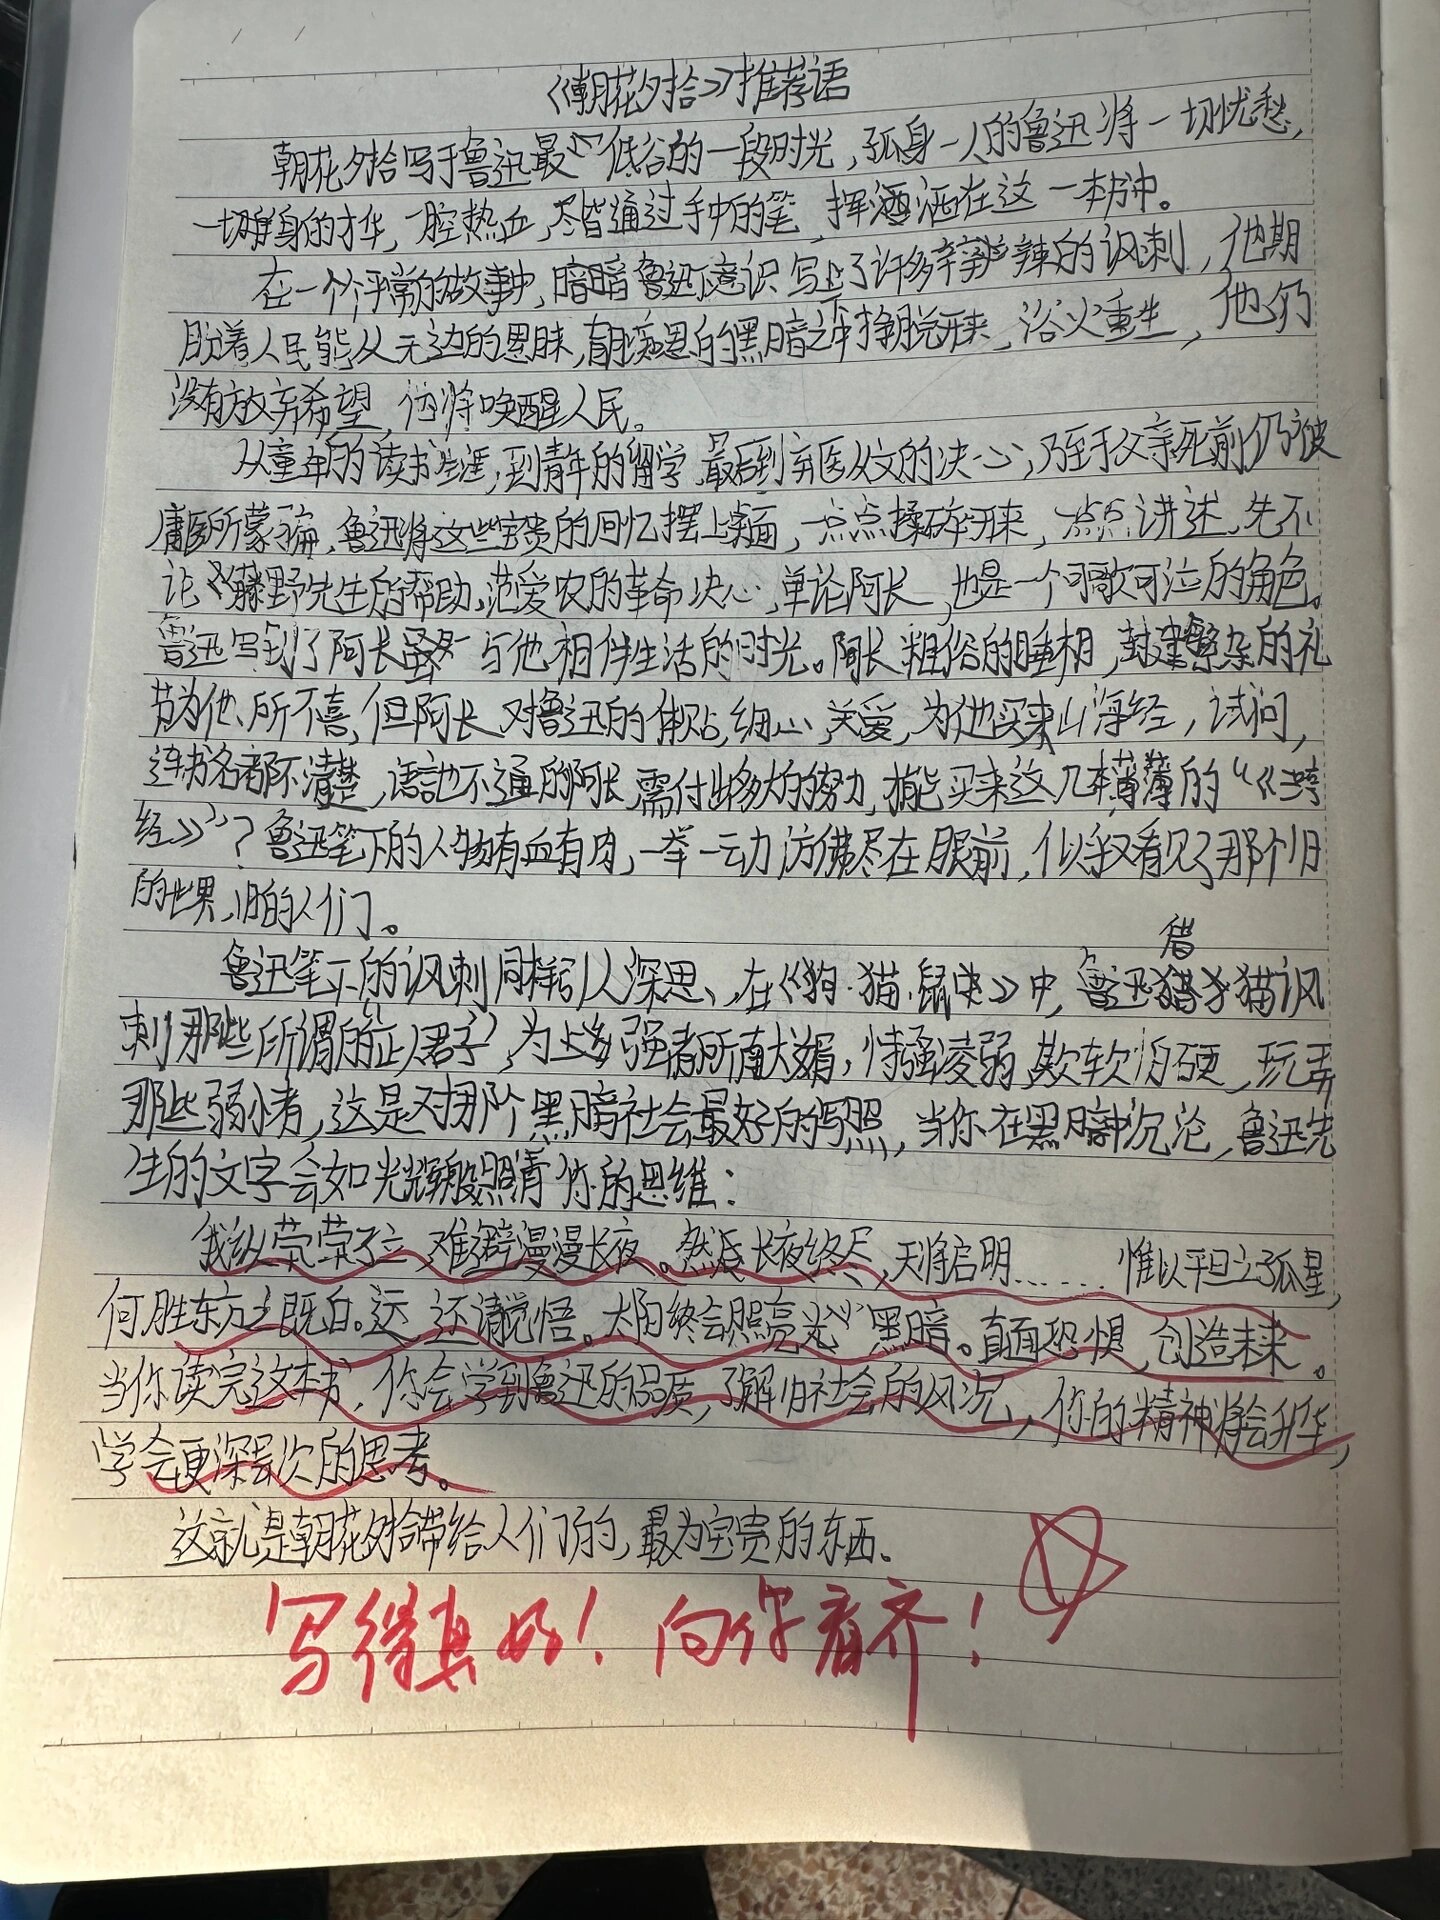 《朝花夕拾》推荐语
朝花夕拾写于鲁迅最低谷的一段时光，孤身一人的鲁迅将一切忧愁，
一切身的才华，一腔热血，尽皆通过手中的笔，挥洒在这一本书中。
在一个个平常的故事中，暗暗鲁迅下意识写上了许多辛辣的讽刺，他期
盼着人民能从无边的愚昧，的黑暗之中挣脱开来，浴火重生，他仍
没有放弃希望，他将唤醒人民。
从童年的读书生涯，到青年的留学，最后到弃医从文的决心，乃至于父亲死前仍被
庸医所蒙骗，鲁迅将这些宝贵的回忆摆上桌面，一点点揉碎开来，一点点讲述，先不
论《藤野先生的帮助，范爱农的革命决心，单论阿长，也是一个可歌可泣的角色。
鲁迅写到了阿长与他相伴生活的时光。阿长粗俗的睡相，封建繁杂的礼
节为他所不喜，但阿长对鲁迅的体贴，细心，关爱，为他买来山海经，试问，
连书名都不清楚，语言也不通的阿长，需付出多大的努力，才能买来这几本薄薄的“《三哼
经》”？鲁迅笔下的人物有血有肉，一举一动仿佛尽在眼前，似乎又看见了那个旧
的世界，旧的人们。
鲁迅笔下的讽刺同样引人深思、在《狗·猫·鼠》中，鲁迅借猫讽
刺那些所谓的“正人君子”，为上多强者所献媚，恃强凌弱，欺软怕硬，玩弄
那些弱小者，这是对那个黑暗社会最好的写照，当你在黑暗中沉沦，鲁迅先
生的文字会如光辉般照清你的思维：
我纵茕茕孑立，难避漫漫长夜。然长夜终尽，天将启明……惟以平旦立孤星，
何胜东方之既白。还请觉悟。太阳终会照亮黑暗。直面恐惧，创造未来。
当你读完这本书，你会学到鲁迅的品质，了解旧社会的风况，你的精神将会升华，
学会更深层次的思考。
这就是朝花夕拾带给人们的，最为宝贵的东西、
写得真好！向你看齐！